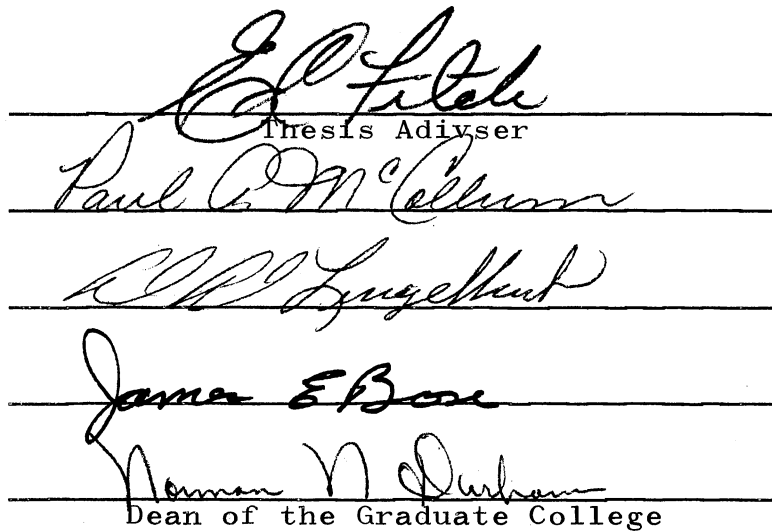 E C Fitch
Thesis Adivser
Paul A McCollum
James E Bose
Norman N Durham
Dean of the Graduate College